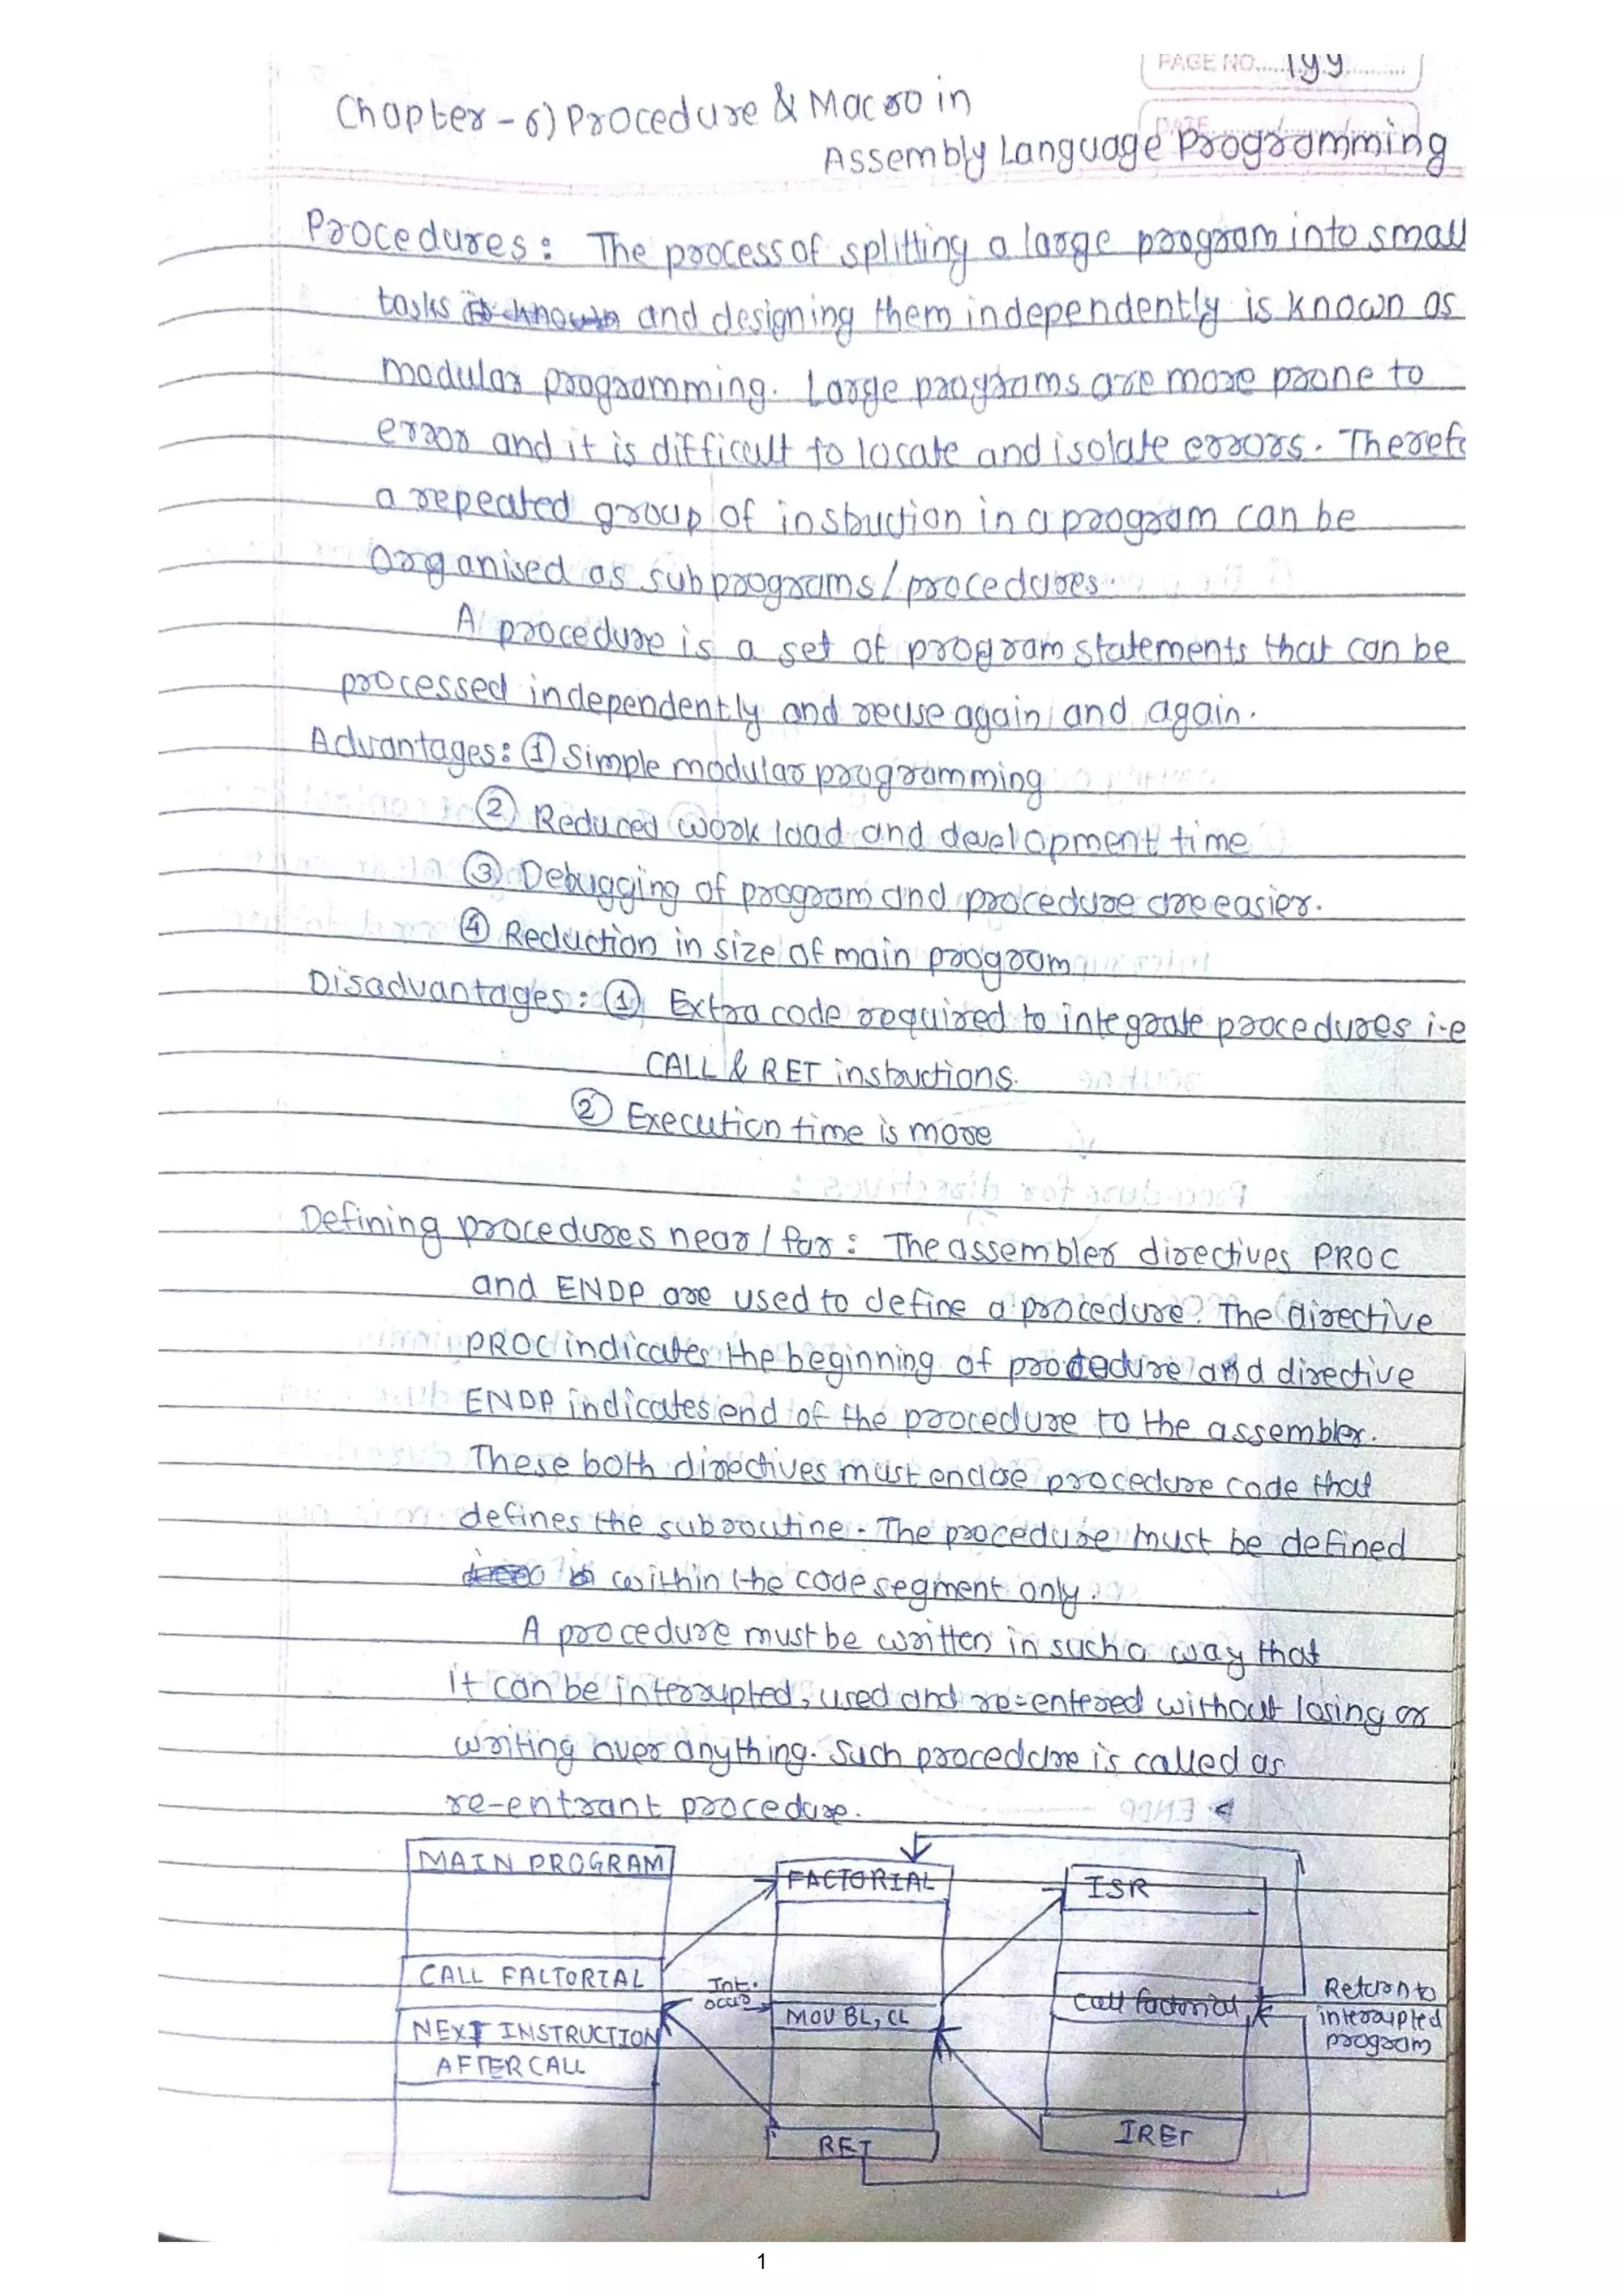 PAGE NO. 144
DATE
Chapter - 6) Procedure & Macro in
Assembly Language Programming
Procedures : The process of splitting a large program into small
tasks and designing them independently is known as
modular programming. Large programs are more prone to
error and it is difficult to locate and isolate errors. Therefo
a repeated group of instruction in a program can be
Organised as subprograms / procedures.
A procedure is a set of program statements that can be
processed independently and reuse again and again.
Advantages : ① Simple modular programming
② Reduced work load and development time
③ Debugging of program and procedure are easier.
④ Reduction in size of main program
Disadvantages : ① Extra code required to integrate procedures i.e
CALL & RET instructions.
② Execution time is more
Defining procedures near / far : The assembler directives PROC
and ENDP are used to define a procedure. The directive
PROC indicates the beginning of procedure and directive
ENDP indicates end of the procedure to the assembler.
These both directives must enclose procedure code that
defines the subroutine. The procedure must be defined
within the code segment only.
A procedure must be written in such a way that
it can be interrupted, used and re-entered without losing or
writing over anything. Such procedure is called as
re-entrant procedure.
MAIN PROGRAM
FACTORIAL
ISR
CALL FACTORIAL
Int.
occur
MOV BL, CL
Call factorial
Return to
interrupted
program
NEXT INSTRUCTION
AFTER CALL
RET
IRET
1